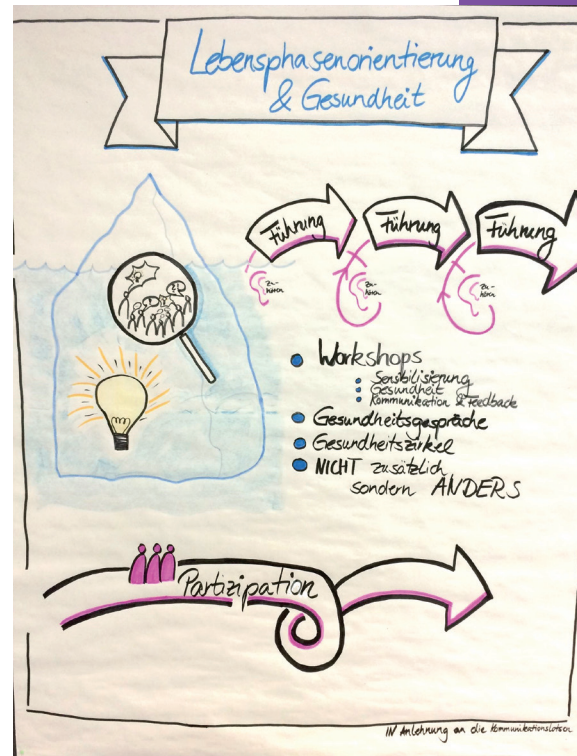 Lebensphasenorientierung
& Gesundheit
Führung Führung Führung
Zu-
hören
Zu-
hören
Zu-
hören
Workshops
Sensibilisierung
Gesundheit
Kommunikation & Feedback
Gesundheitsgespräche
Gesundheitszirkel
NICHT zusätzlich
sondern ANDERS
Partizipation
IN Anlehnung an die Kommunikationslotsen